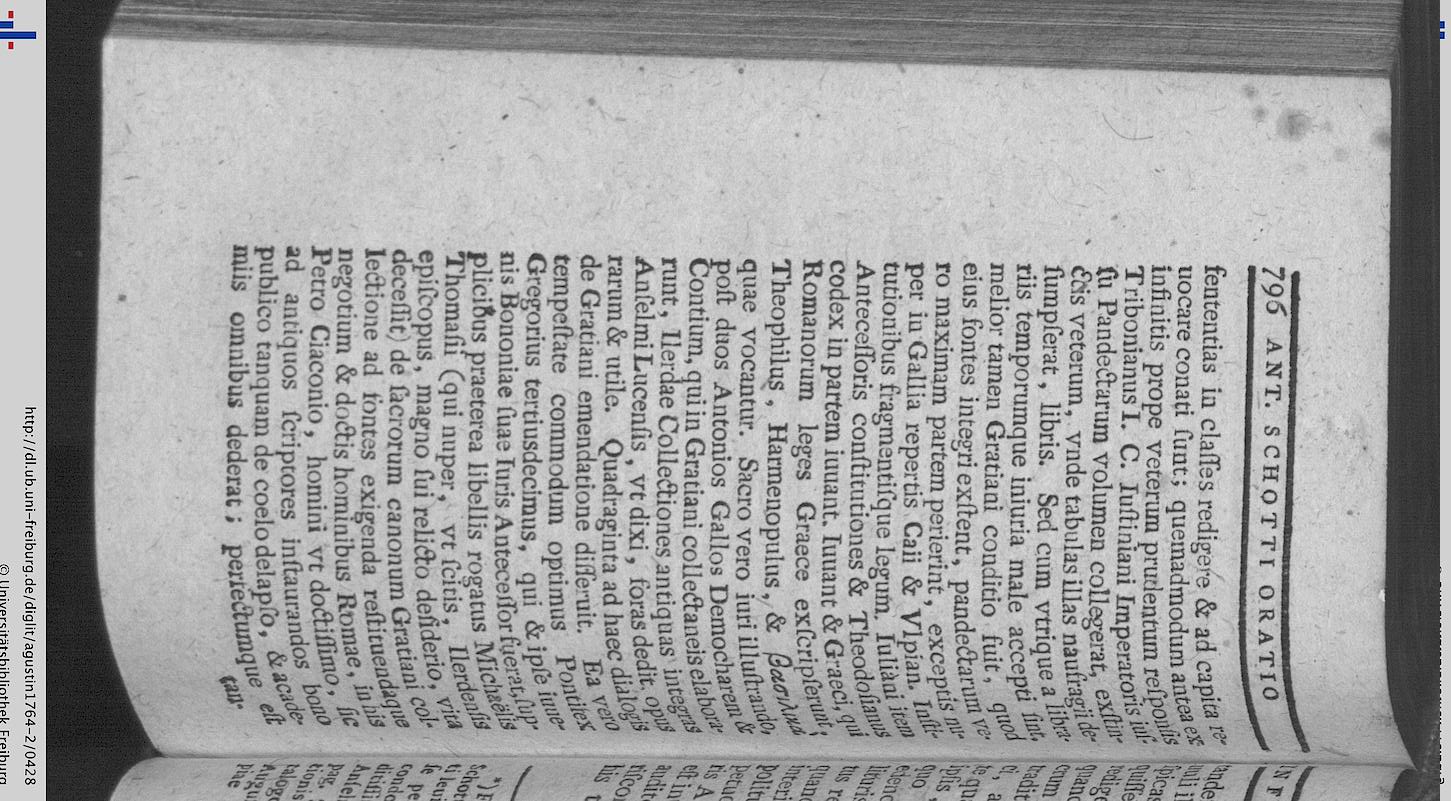 796 ANT. SCHOTTI ORATIO
ſententias in claſſes redigere & ad capita re-
uocare conati ſunt; quemadmodum antea ex
infinitis prope veterum prudentum reſponſis
Tribonianus I. C. Iuſtiniani Imperatoris iuſ-
ſu Pandectarum volumen collegerat, exſtin-
ctis veterum, vnde tabulas illas naufragii de-
ſumpſerat, libris. Sed cum vtrique a libra-
riis temporumque iniuria male accepti ſint,
melior tamen Gratiani conditio fuit, quod
eius fontes integri exſtent, pandectarum ve-
ro maximam partem perierint, exceptis nu-
per in Gallia repertis Caii & Vlpian. Inſti-
tutionibus fragmentiſque legum. Iuliani item
Anteceſſoris conſtitutiones & Theodoſianus
codex in partem iuuant. Iuuant & Graeci, qui
Romanorum leges Graece exſcripſerunt,
Theophilus, Harmenopulus, & βασιλικὰ
quae vocantur. Sacro vero iuri illuſtrando,
poſt duos Antonios Gallos Democharem &
Contium, qui in Gratiani collectaneis elabora-
runt, Ilerdae Collectiones antiquas integras
Anſelmi Lucenſis, vt dixi, foras dedit, opus
rarum & utile. Quadraginta ad haec dialogis
de Gratiani emendatione diſeruit. Ea vero
tempeſtate commodum optimus Pontifex
Gregorius tertiusdecimus, qui & ipſe iuue-
nis Bononiae ſuae Iuris Anteceſſor fuerat, ſup-
plicibus praeterea libellis rogatus Michaëlis
Thomaſii (qui nuper, vt ſcitis, Ilerdenſis
epiſcopus, magno ſui relicto deſiderio, vita
deceſſit) de ſacrorum canonum Gratiani col-
lectione ad fontes exigenda reſtituendaque
negotium & doctis hominibus Romae, in his
Petro Ciaconio, homini vt doctiſſimo, ſic
ad antiquos ſcriptores inſtaurandos bono
publico tanquam de coelo delapſo, & acade-
miis omnibus dederat; perfectumque eſt
tan-
http://dl.ub.uni-freiburg.de/diglit/agustin1764-2/0428
© Universitätsbibliothek Freiburg